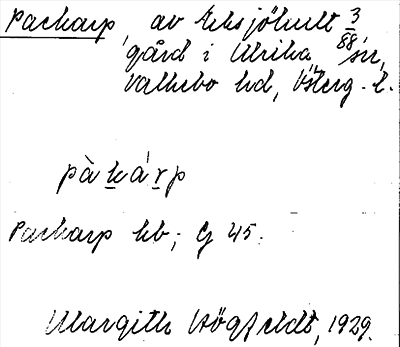 Packarp, av Eksjöhult 3/88
gård i Ulrika sn,
Valkebo hd, Österg. l.
pàkárp
Packarp hb; G 45.
Margith Högfeldt, 1929.